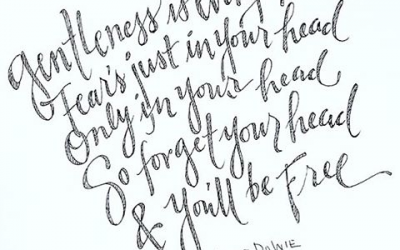 Gentleness is
Fear's just in your head
Only in your head
So forget your head
& You'll be Free